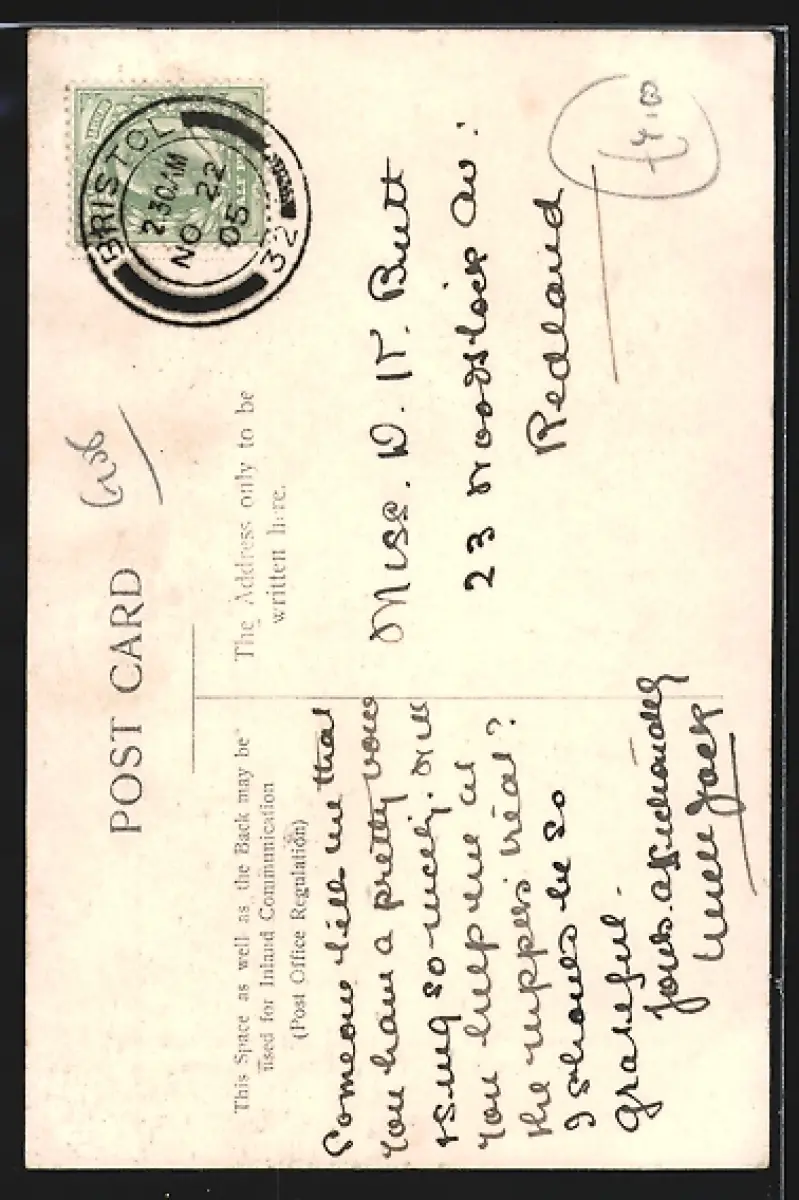 POST CARD
This Space as well as the Back may be
used for Inland Communication
(Post Office Regulation)
The Address only to be
written here.
BRISTOL
2.30 AM
NO 22
05
32
Someone tells me that
you have a pretty voice
& sing so nicely. Will
you help me at
the nippers' treat?
I should be so
grateful.
Yours affectionately
Uncle Jack
Miss. D. W. Butt
23 Woodstock Av:
Redland
£4.00